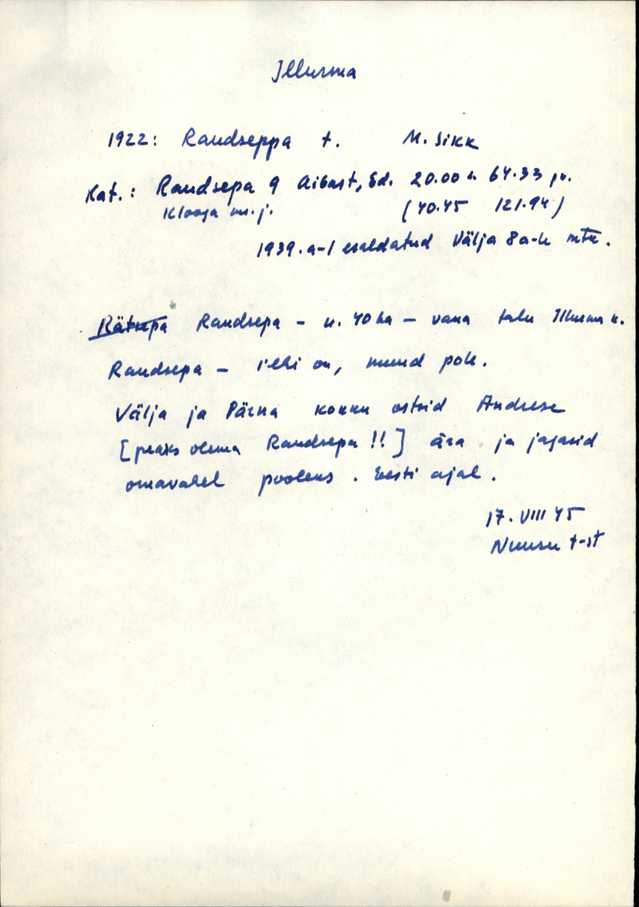 Illurma
1922: Raudseppa t. M. Sikk
Kat.: Raudsepa 9 Aibast, Ed. 20.00 h. 64.33 jv.
Klooga m. j. (40.45 121.94)
1939. a-l eraldatud Välja 8a-le mtk.
Rätsepa Raudsepa – u. 40 ha – vana talu Illurma k.
Raudsepa – oli on, muud pole.
Välja ja Pärna kokku ostsid Andrese
[peaks olema Raudsepa !!] ära ja jagasid
omavahel pooleks. Eesti ajal.
17. VIII 45
Nuusu t-st